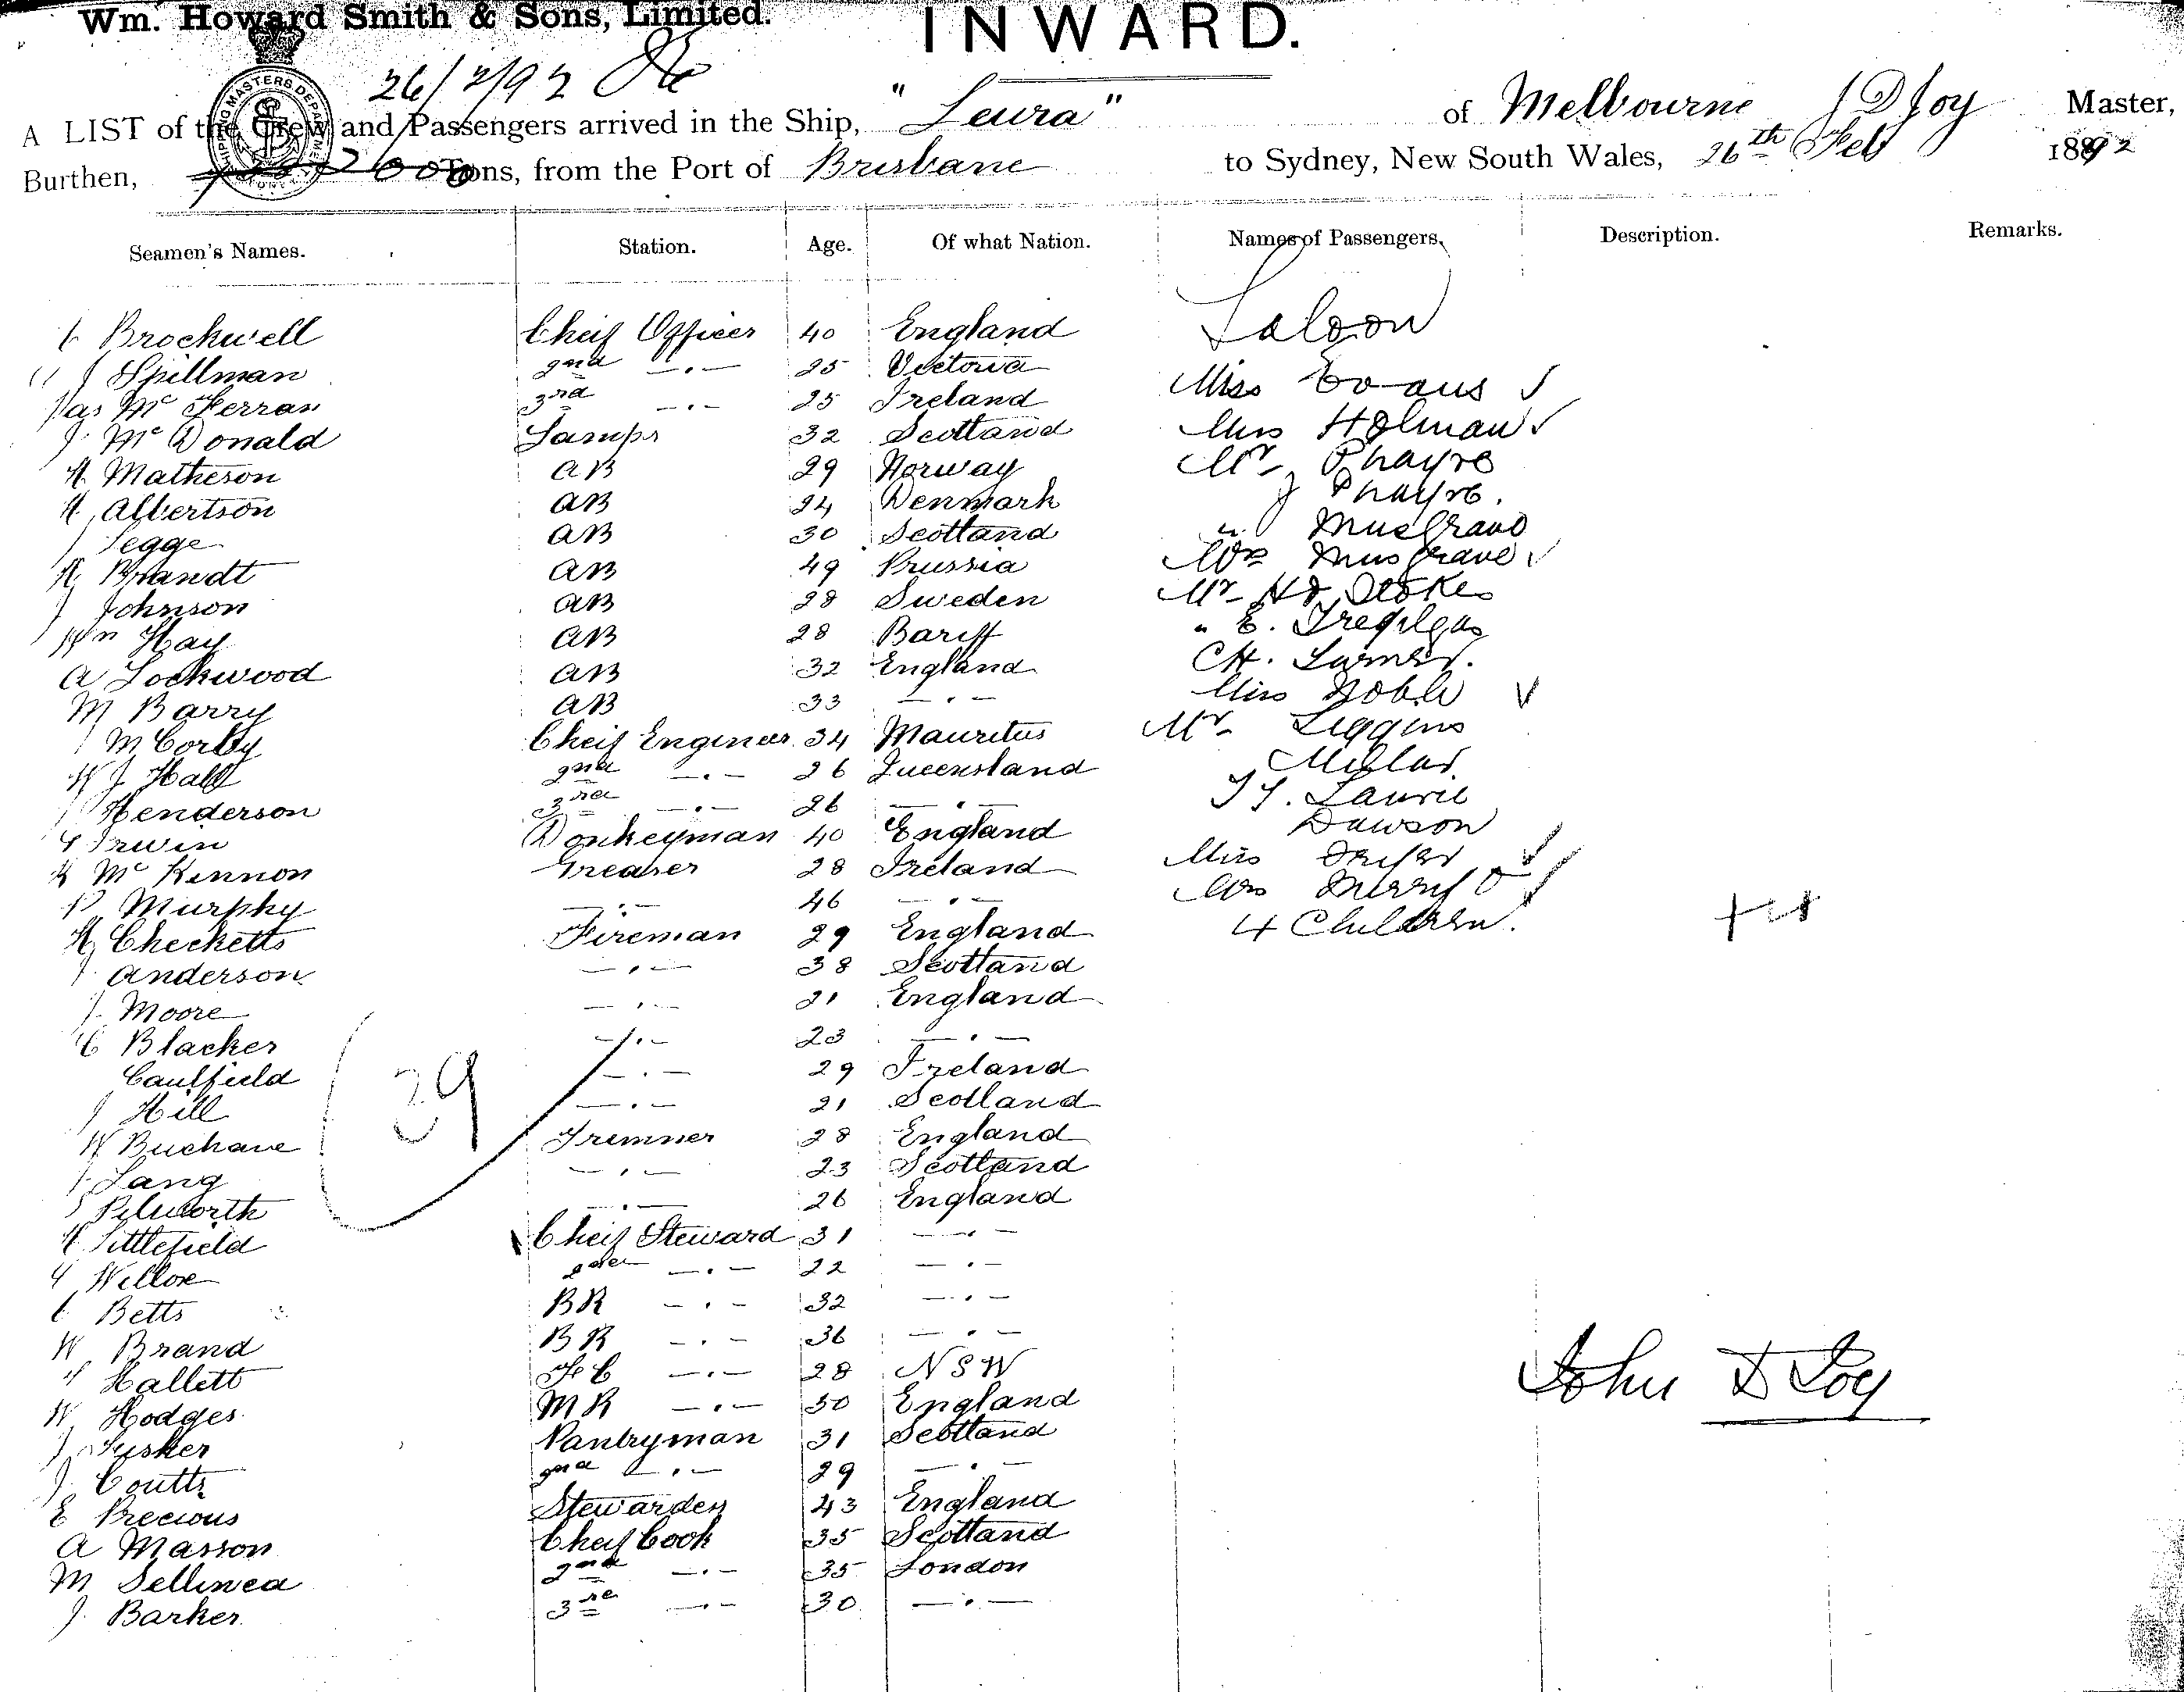 Wm. Howard Smith & Sons, Limited.
INWARD.
26/2/92
A LIST of the Crew and Passengers arrived in the Ship, "Leura" of Melbourne J D Joy Master,
Burthen, Tons, from the Port of Brisbane to Sydney, New South Wales, 26th Feb 1892
Seamen's Names. Station. Age. Of what Nation. Names of Passengers. Description. Remarks.
Saloon
C Brockwell Cheif Officer 40 England
J Spillman 2nd —.— 25 Victoria Miss Evans
Jas Mc Ferran 3rd —.— 25 Ireland Miss Holman
J. Mc Donald Lamps 32 Scotland Mr Phayre
A. Matheson AB 29 Norway J Phayre.
A. Albertson AB 24 Denmark " Musgrave
J Legge AB 30 Scotland Mrs Musgrave
A. Brandt AB 49 Prussia Mr Hd Stokes
J Johnson AB 28 Sweden " E. Tregilgas
Wm Hay AB 28 Bariff CH. Turner.
A Lockwood AB 32 England Miss Noble
M Barry AB 33 —.— Mr Liggins
J M Corby Cheif Engineer 34 Mauritus Millar.
W J Hall 2nd —.— 26 Queensland T S. Laurie
J Henderson 3rd —.— 26 —.— Dawson
G Irwin Donkeyman 40 England Miss
H Mc Kennon Greaser 28 Ireland Mrs
P Murphy —.— 46 —.— 4 Children.
H Checketts Fireman 29 England
J Anderson —.— 38 Scotland
J. Moore —.— 21 England
C Blacker —.— 23 —.—
Caulfield —.— 29 Ireland
J Hill —.— 21 Scotland
39
W Buchane Trimmer 28 England
J. Lang —.— 23 Scotland
J Pilworth —.— 26 England
A Littlefield Cheif Steward 31 —.—
G Willox 2nd —.— 22 —.—
C Betts BR —.— 32 —.—
W Brand BR —.— 36 —.—
G Hallett FC —.— 28 NSW
W Hodges MR —.— 30 England
J Lusker Pantryman 31 Scotland
J. Coutts 2nd —.— 29 —.—
E Precious Stewardess 43 England
A Masson Cheif Cook 35 Scotland
M Sellinea 2nd —.— 35 London
J. Barker 3rd —.— 30 —.—
John D Joy